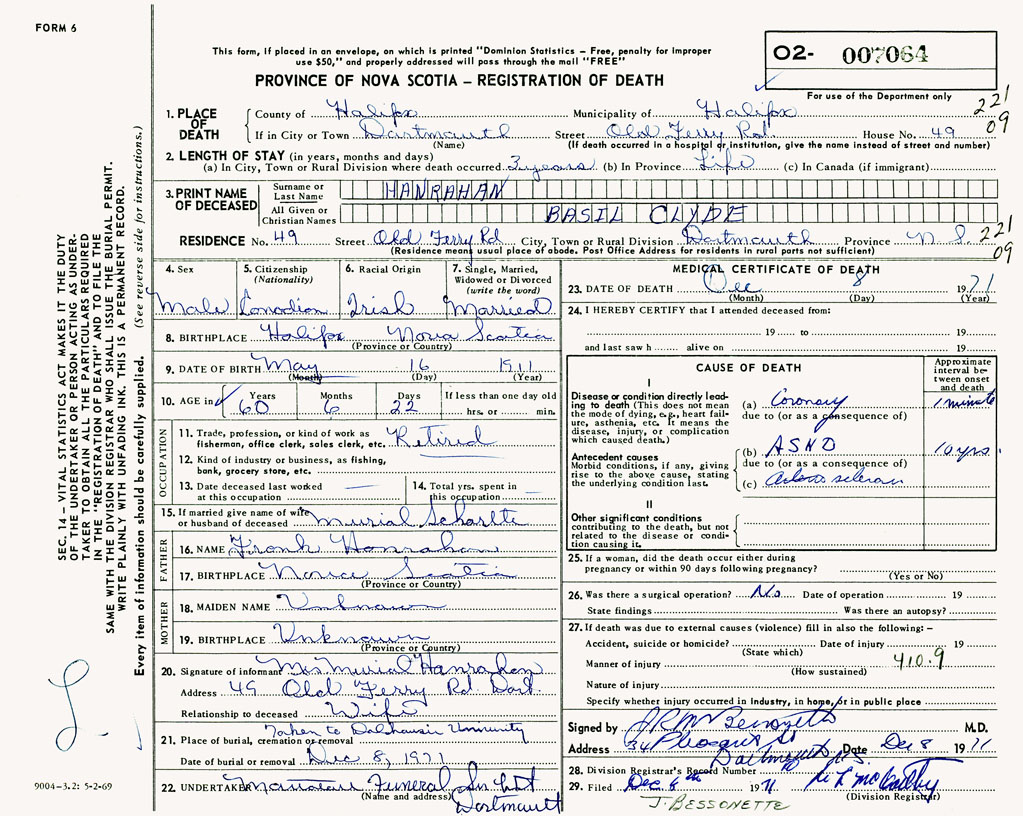 FORM 6
This form, if placed in an envelope, on which is printed "Dominion Statistics – Free, penalty for improper
use $50," and properly addressed will pass through the mail "FREE"
O2- 007064
PROVINCE OF NOVA SCOTIA – REGISTRATION OF DEATH
For use of the Department only
221
09
1. PLACE OF DEATH
County of Halifax Municipality of Halifax
If in City or Town Dartmouth Street Old Ferry Rd. House No. 49
(Name) (If death occurred in a hospital or institution, give the name instead of street and number)
2. LENGTH OF STAY (in years, months and days)
(a) In City, Town or Rural Division where death occurred 3 years (b) In Province Life (c) In Canada (if immigrant)
3. PRINT NAME OF DECEASED
Surname or Last Name HANRAHAN
All Given or Christian Names BASIL CLYDE
RESIDENCE No. 49 Street Old Ferry Rd City, Town or Rural Division Dartmouth Province N.S.
221
09
(Residence means usual place of abode. Post Office Address for residents in rural parts not sufficient)
4. Sex
Male
5. Citizenship (Nationality)
Canadian
6. Racial Origin
Irish
7. Single, Married, Widowed or Divorced (write the word)
Married
8. BIRTHPLACE Halifax Nova Scotia
(Province or Country)
9. DATE OF BIRTH May 16 1911
(Month) (Day) (Year)
10. AGE in Years 60 Months 6 Days 22 If less than one day old
hrs. or min.
OCCUPATION
11. Trade, profession, or kind of work as
fisherman, office clerk, sales clerk, etc. Retired
12. Kind of industry or business, as fishing,
bank, grocery store, etc.
13. Date deceased last worked
at this occupation
14. Total yrs. spent in
this occupation
15. If married give name of wife
or husband of deceased Murial
FATHER
16. NAME Frank Hanrahan
17. BIRTHPLACE Nova Scotia
(Province or Country)
MOTHER
18. MAIDEN NAME Unknown
19. BIRTHPLACE Unknown
(Province or Country)
20. Signature of informant Mrs Murial Hanrahan
Address 49 Old Ferry Rd. Dart.
Relationship to deceased Wife
21. Place of burial, cremation or removal Taken to Dalhousie University
Date of burial or removal Dec 8, 1971
22. UNDERTAKER Funeral Dartmouth
(Name and address)
MEDICAL CERTIFICATE OF DEATH
23. DATE OF DEATH Dec 8 1971
(Month) (Day) (Year)
24. I HEREBY CERTIFY that I attended deceased from:
19 to 19
and last saw h alive on 19
CAUSE OF DEATH
Approximate interval between onset and death
I
Disease or condition directly leading to death (This does not mean the mode of dying, e.g., heart failure, asthenia, etc. It means the disease, injury, or complication which caused death.)
(a) Coronary 1 minute
due to (or as a consequence of)
Antecedent causes
Morbid conditions, if any, giving rise to the above cause, stating the underlying condition last.
(b) ASHD 10 yrs.
due to (or as a consequence of)
(c)
II
Other significant conditions
contributing to the death, but not related to the disease or condition causing it.
25. If a woman, did the death occur either during
pregnancy or within 90 days following pregnancy?
(Yes or No)
26. Was there a surgical operation? No Date of operation 19
State findings Was there an autopsy?
27. If death was due to external causes (violence) fill in also the following: –
Accident, suicide or homicide? Date of injury 19
(State which)
Manner of injury 410.9
(How sustained)
Nature of injury
Specify whether injury occurred in industry, in home, or in public place
Signed by M.D.
Address 34 Pleasant St Dartmouth N.S. Date Dec 8 1971
28. Division Registrar's Record Number
29. Filed Dec. 8th 1971
(Division Registrar)
J. BESSONETTE
SEC. 14 – VITAL STATISTICS ACT MAKES IT THE DUTY
OF THE UNDERTAKER OR PERSON ACTING AS UNDER-
TAKER TO OBTAIN ALL THE PARTICULARS REQUIRED
IN THE "REGISTRATION OF DEATH" AND TO FILE THE
SAME WITH THE DIVISION REGISTRAR WHO SHALL ISSUE THE BURIAL PERMIT.
WRITE PLAINLY WITH UNFADING INK. THIS IS A PERMANENT RECORD.
Every item of information should be carefully supplied. (See reverse side for instructions.)
9004-3.2: 5-2-69